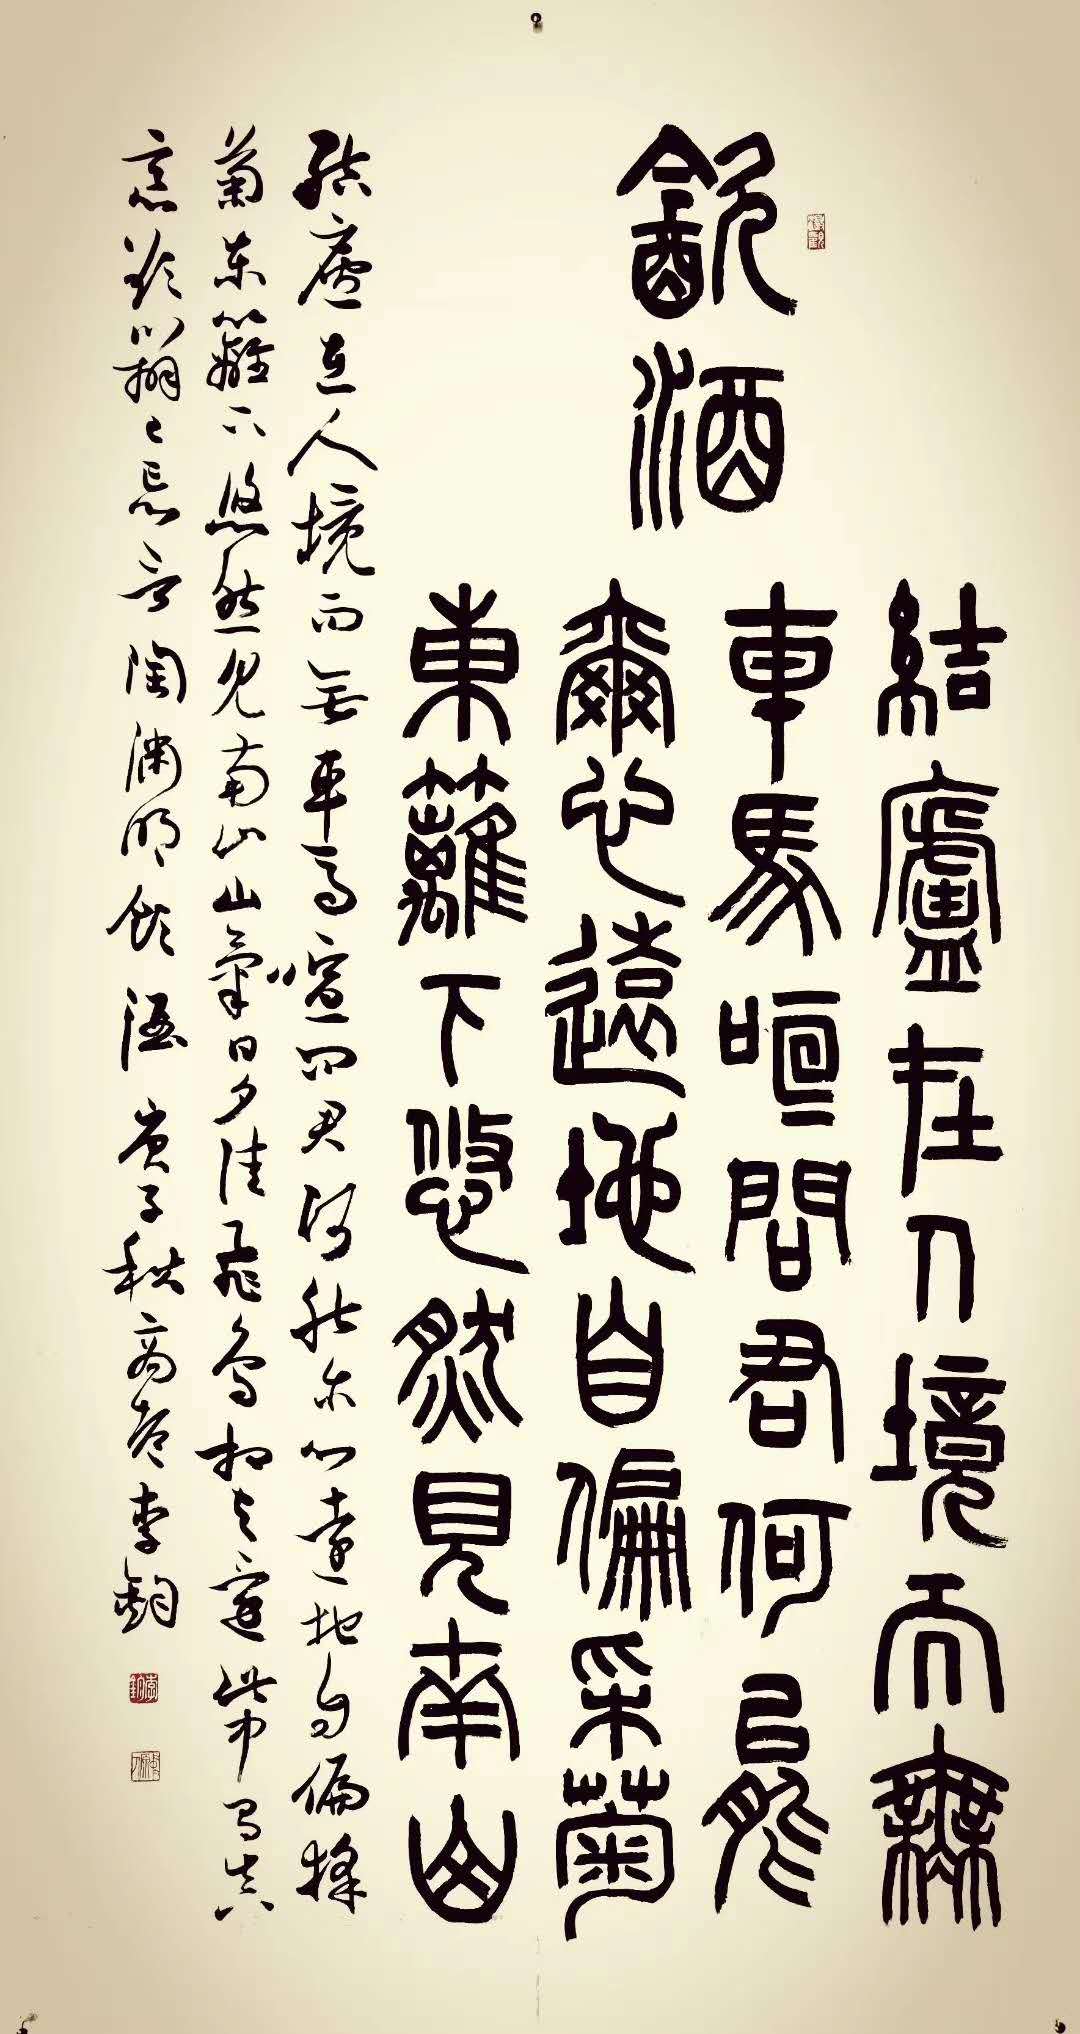 飲酒
結廬在人境而無
車馬喧問君何能
爾心遠地自偏采菊
東籬下悠然見南山
結廬在人境而無車馬喧問君何能尔心遠地自偏採
菊東籬下悠然見南山山氣日夕佳飛鳥相與還此中有真
意欲辯已忘言陶淵明飲酒庚子秋李鈞